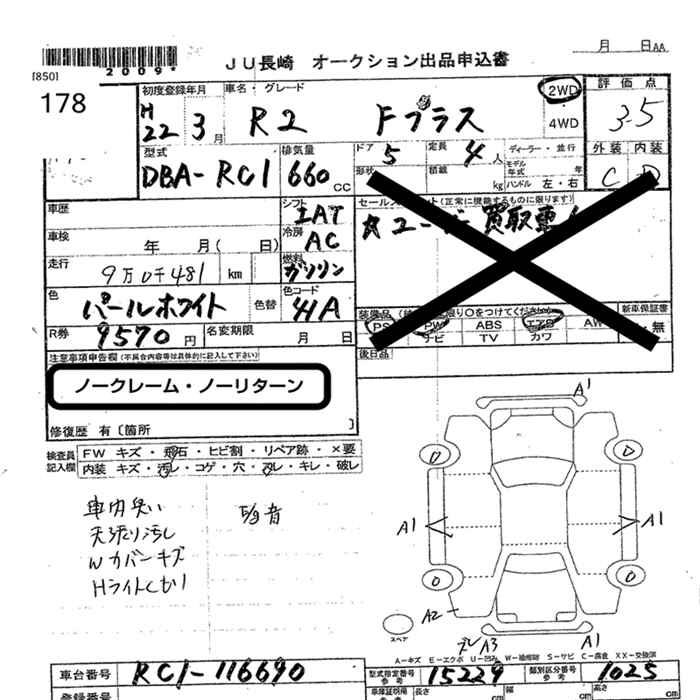 月 日AA
2009*
[850]
JU長崎 オークション出品申込書
178
初度登録年月 車名・グレード 評価点
H22 3月 R2 Fプラス 2WD 4WD 3.5
型式 排気量 ドア 定員 ディーラー・並行 外装 内装
DBA-RC1 660CC 5 4人 モデル年式 年 C D
形状 積載 kg ハンドル 左・右
車歴 シフト IAT
セールスポイント(正常に機能するものに限ります)
☆ユーザー買取車
車検 年 月( 日) 冷房 AC
走行 9万0千481 km 燃料 ガソリン
色 パールホワイト 色替 色コード
R券 9570円 名変期限 月 日
新車保証書
PS PW ABS エアB AW 無
ナビ TV カワ
後日品
注意事項申告欄(不具合内容等は具体的に記入して下さい)
ノークレーム・ノーリターン
修復歴 有〔箇所 〕
検査員記入欄 FW キズ・飛石・ヒビ割・リペア跡・×要
内装 キズ・汚レ・コゲ・穴・スレ・キレ・破レ
車内臭い
天張り汚し
Wカバーキズ
Hライトくもり
A1
A1
A1
A2
A3
A1
スペア
A-キズ E-エクボ U-凹ミ W-補修跡 S-サビ C-腐食 XX-交換済
車台番号 RC1-116690 型式指定番号 参考 15229 類別区分番号 参考 1025
登録番号 車庫証明用 参考 長さ cm 幅 cm 高さ cm